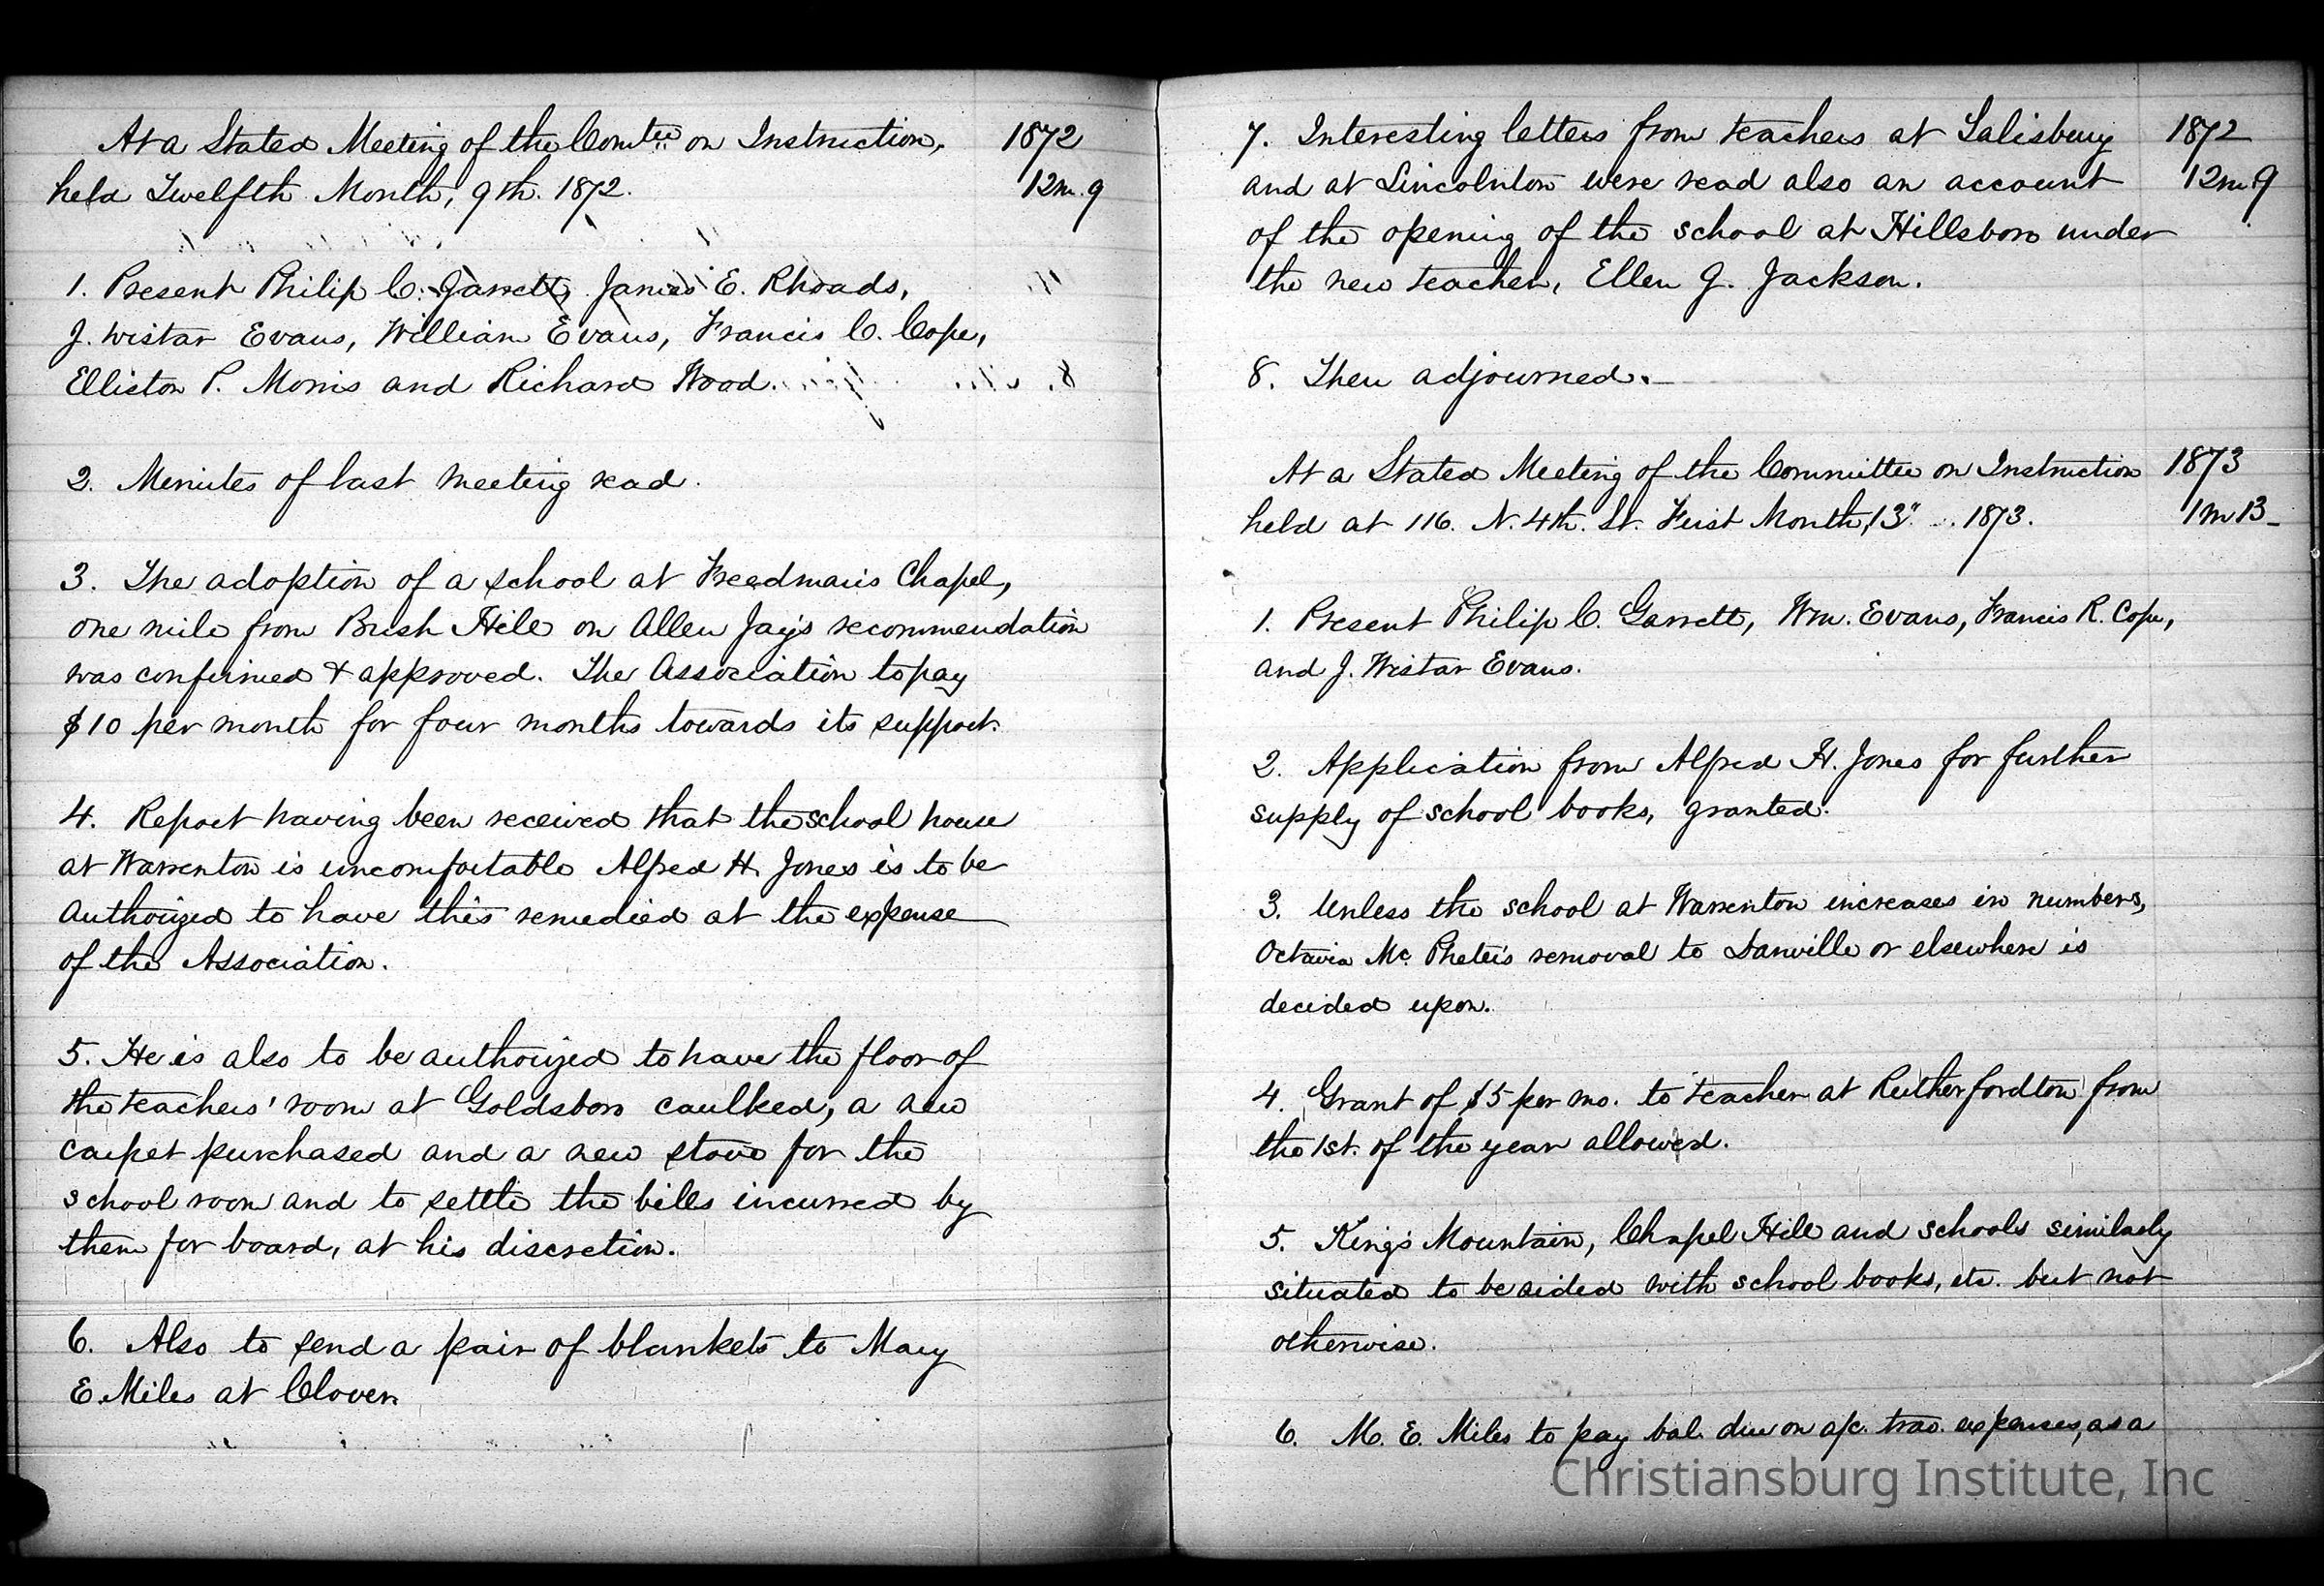 At a Stated Meeting of the Comtee on Instruction, 1872
held Twelfth Month, 9th. 1872. 12m. 9
1. Present Philip C. Garrett, James E. Rhoads,
J. Wistar Evans, William Evans, Francis C. Cope,
Elliston P. Morris and Richard Wood.
2. Minutes of last meeting read.
3. The adoption of a school at Freedman's Chapel,
one mile from Bush Hill on Allen Jay's recommendation
was confirmed & approved. The Association to pay
$10 per month for four months towards its support.
4. Report having been received that the school house
at Warrenton is uncomfortable Alfred H. Jones is to be
authorized to have this remedied at the expense
of the Association.
5. He is also to be authorized to have the floor of
the teachers' room at Goldsboro caulked, a new
carpet purchased and a new stove for the
school room and to settle the bills incurred by
them for board, at his discretion.
6. Also to send a pair of blankets to Mary
E. Miles at Clover.
7. Interesting letters from teachers at Salisbury 1872
and at Lincolnton were read also an account 12m. 9
of the opening of the school at Hillsboro under
the new teacher, Ellen G. Jackson.
8. Then adjourned.—
At a Stated Meeting of the Committee on Instruction 1873
held at 116. N. 4th. St. First Month, 13" 1873. 1m 13_
1. Present Philip C. Garrett, Wm. Evans, Francis R. Cope,
and J. Wistar Evans.
2. Application from Alfred H. Jones for further
supply of school books, granted.
3. Unless the school at Warrenton increases in numbers,
Octavia Mc. Pheter's removal to Danville or elsewhere is
decided upon.
4. Grant of $5 per mo. to teacher at Rutherfordton from
the 1st. of the year allowed.
5. King's Mountain, Chapel Hill and schools similarly
situated to be aided with school books, etc. but not
otherwise.
6. M. E. Miles to pay bal. due on a/c. trav. expenses, as a
Christiansburg Institute, Inc